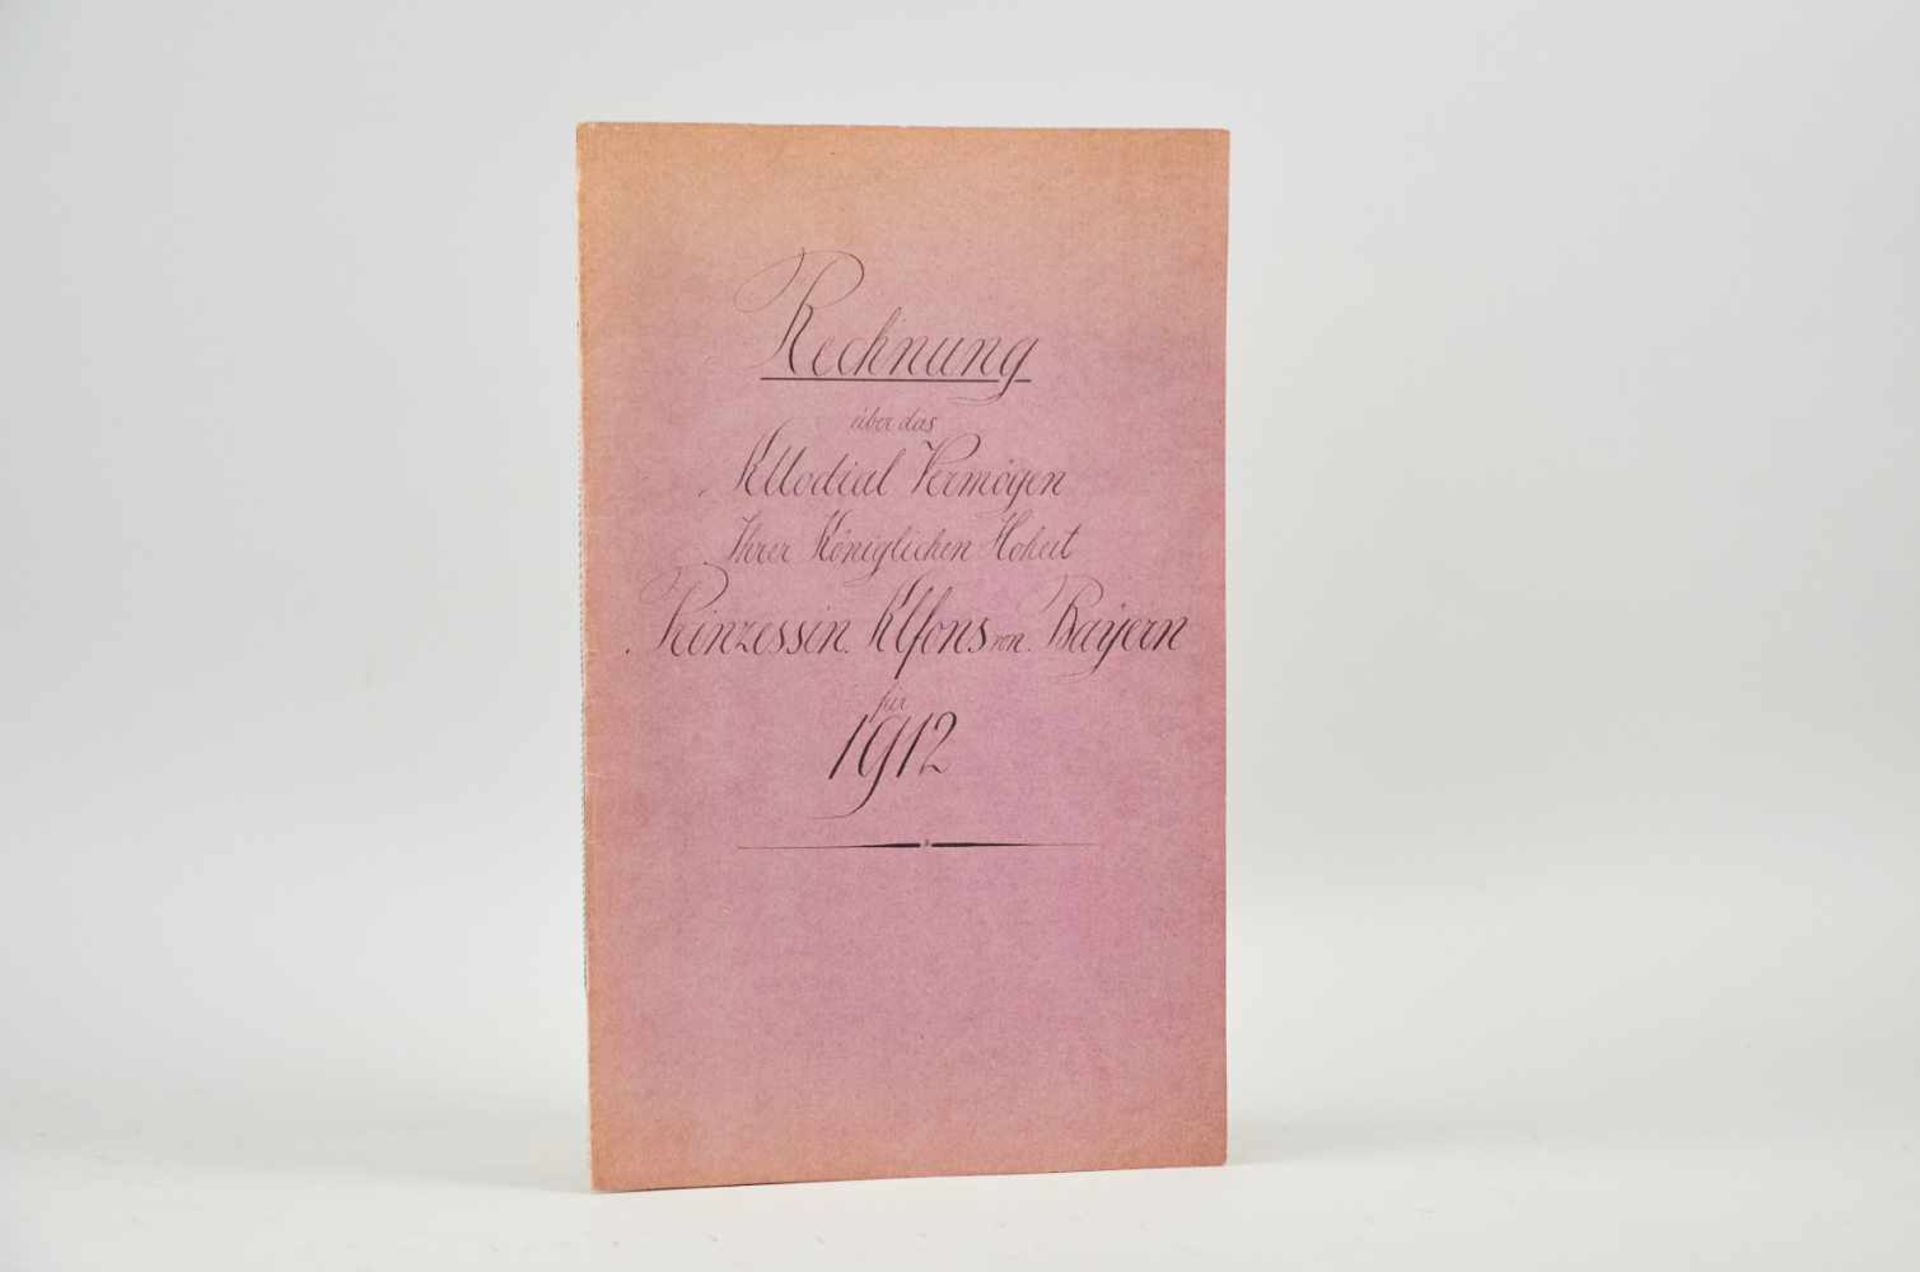 Rechnung
über das
Allodial Vermögen
Ihrer Königlichen Hoheit
Prinzessin Alfons von Bayern
für
1912